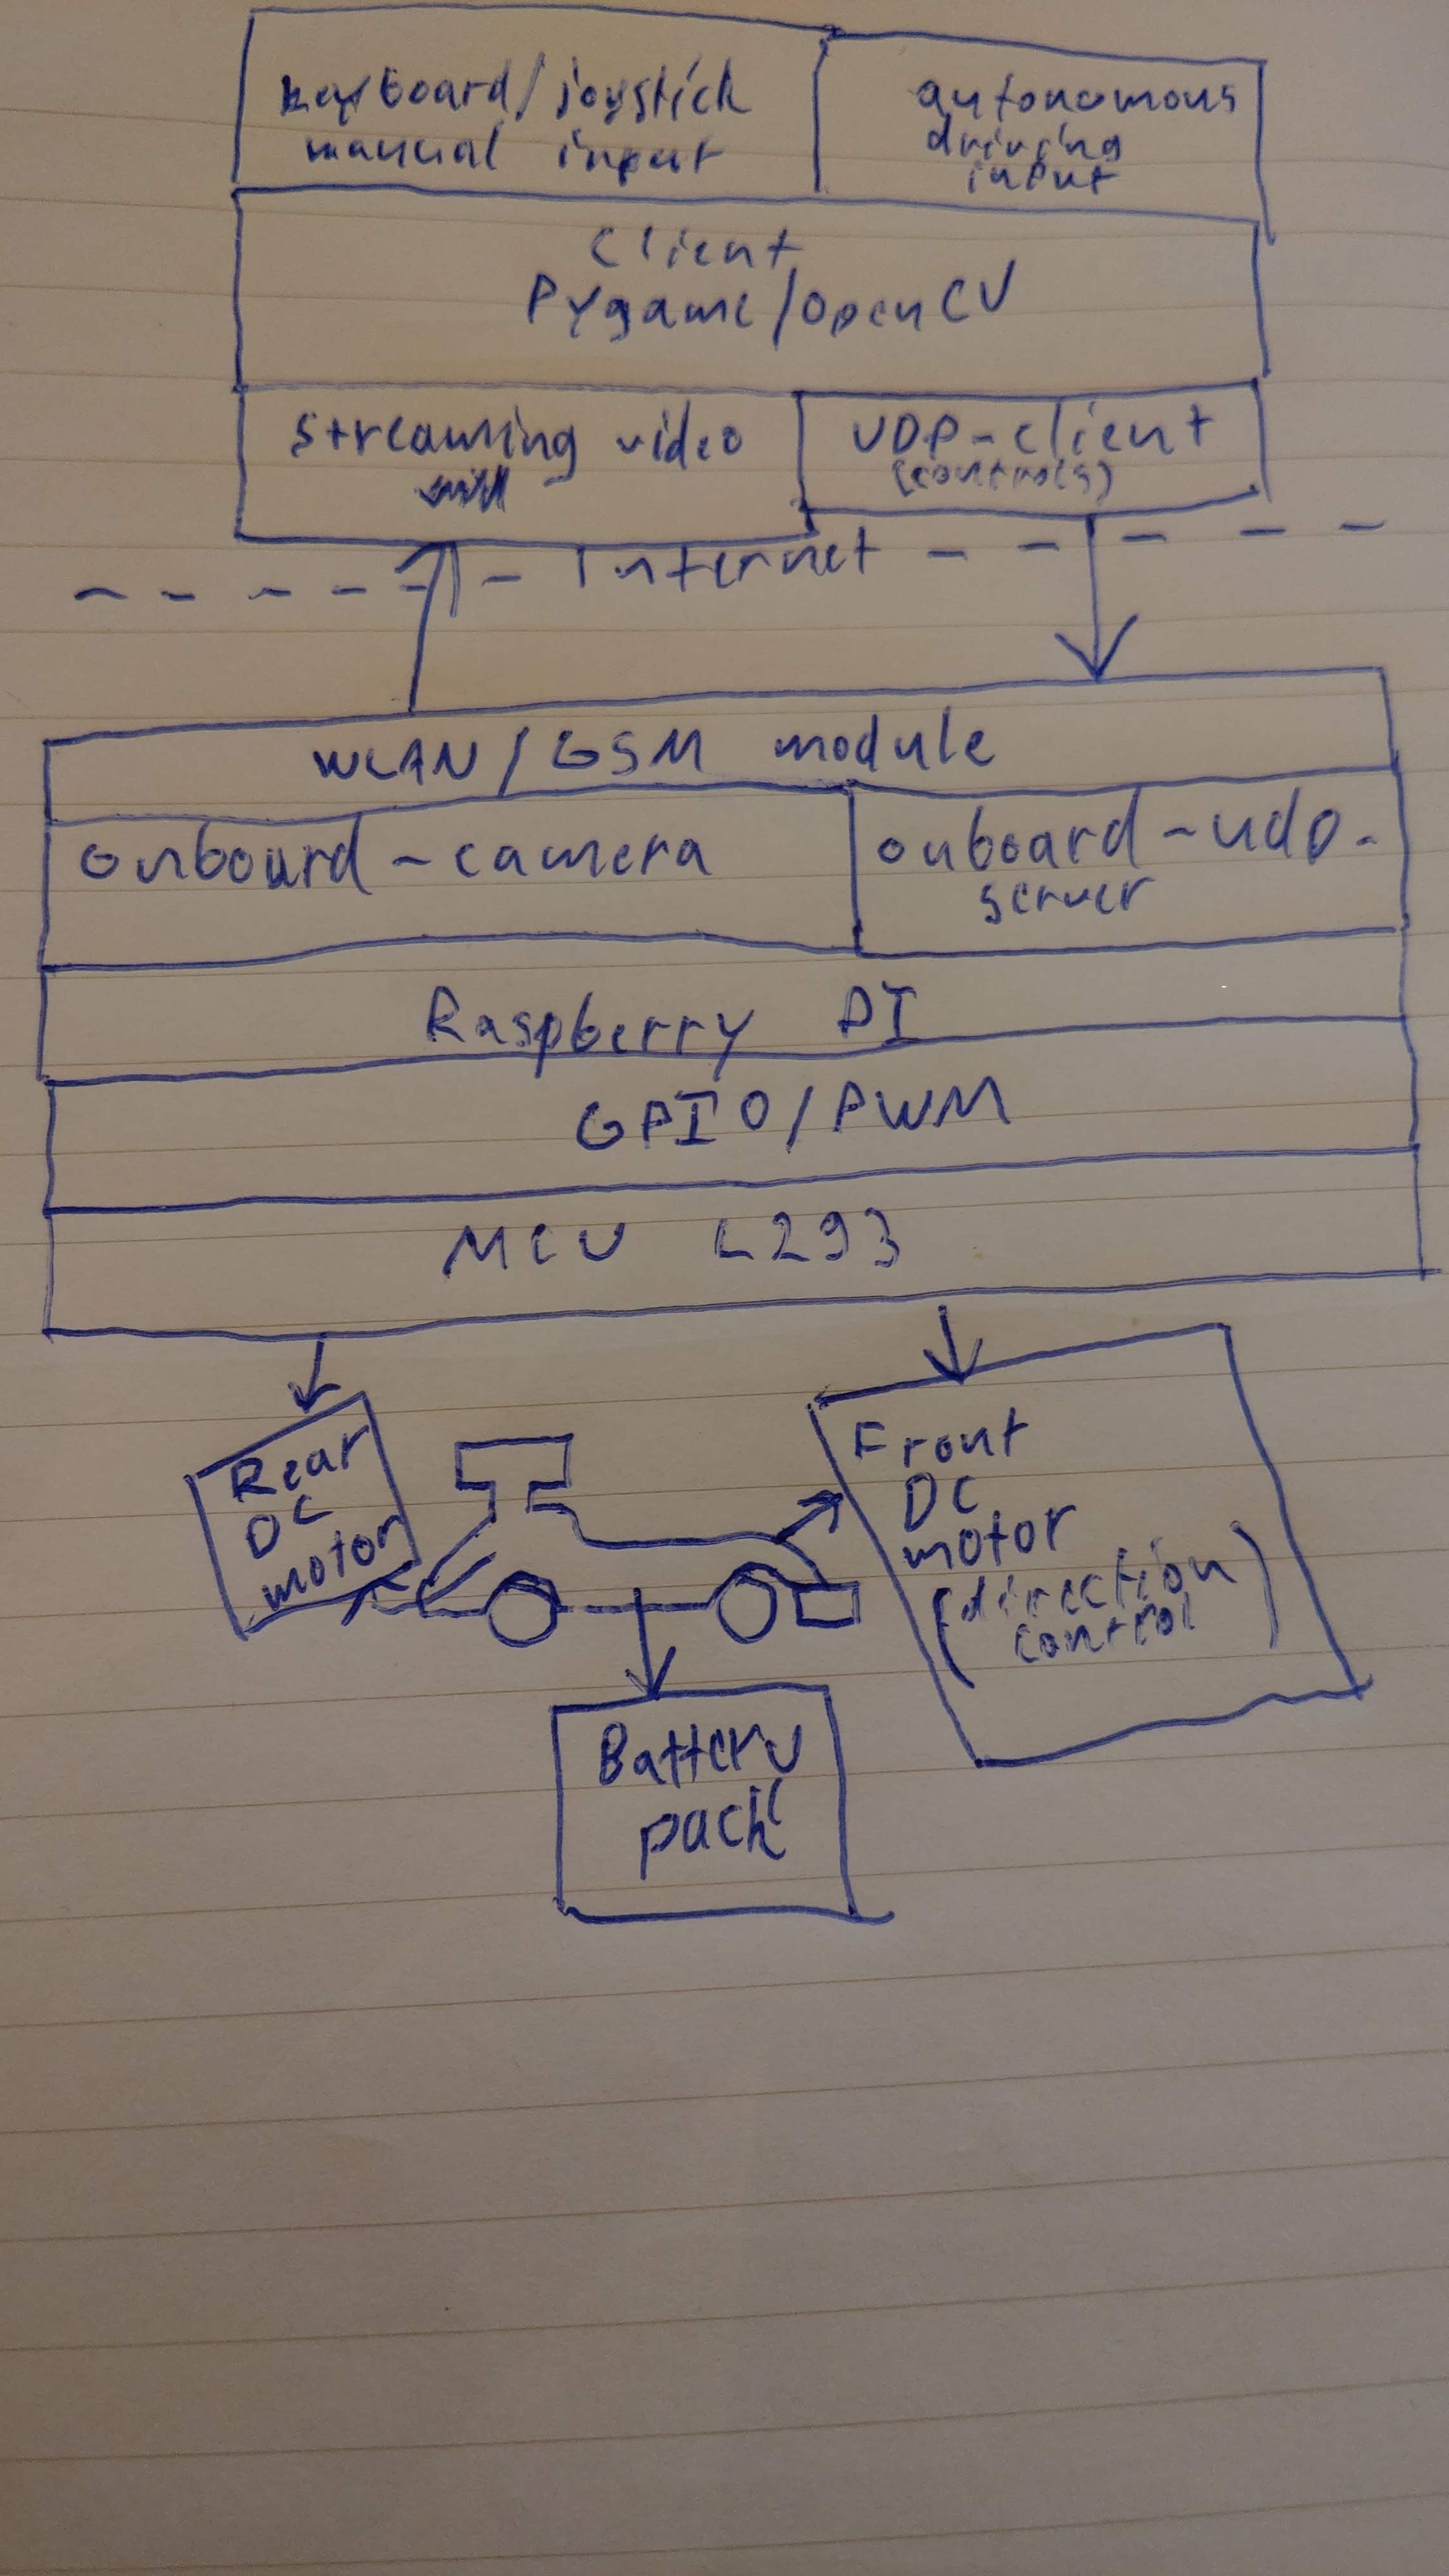 keyboard/joystick
manual input
autonomous
driving
input
Client
Pygame/OpenCV
streaming video
UDP-client
(controls)
Internet
WLAN/GSM module
onboard-camera
onboard-udp-
server
Raspberry PI
GPIO/PWM
MCU L293
Rear
DC
motor
Front
DC
motor
(direction
control)
Battery
pack